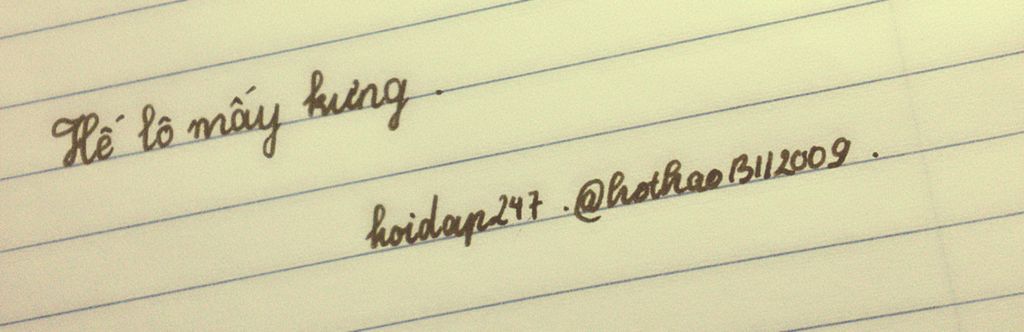 Hế lô mấy kưng .
hoidap247 .@hothao13112009 .